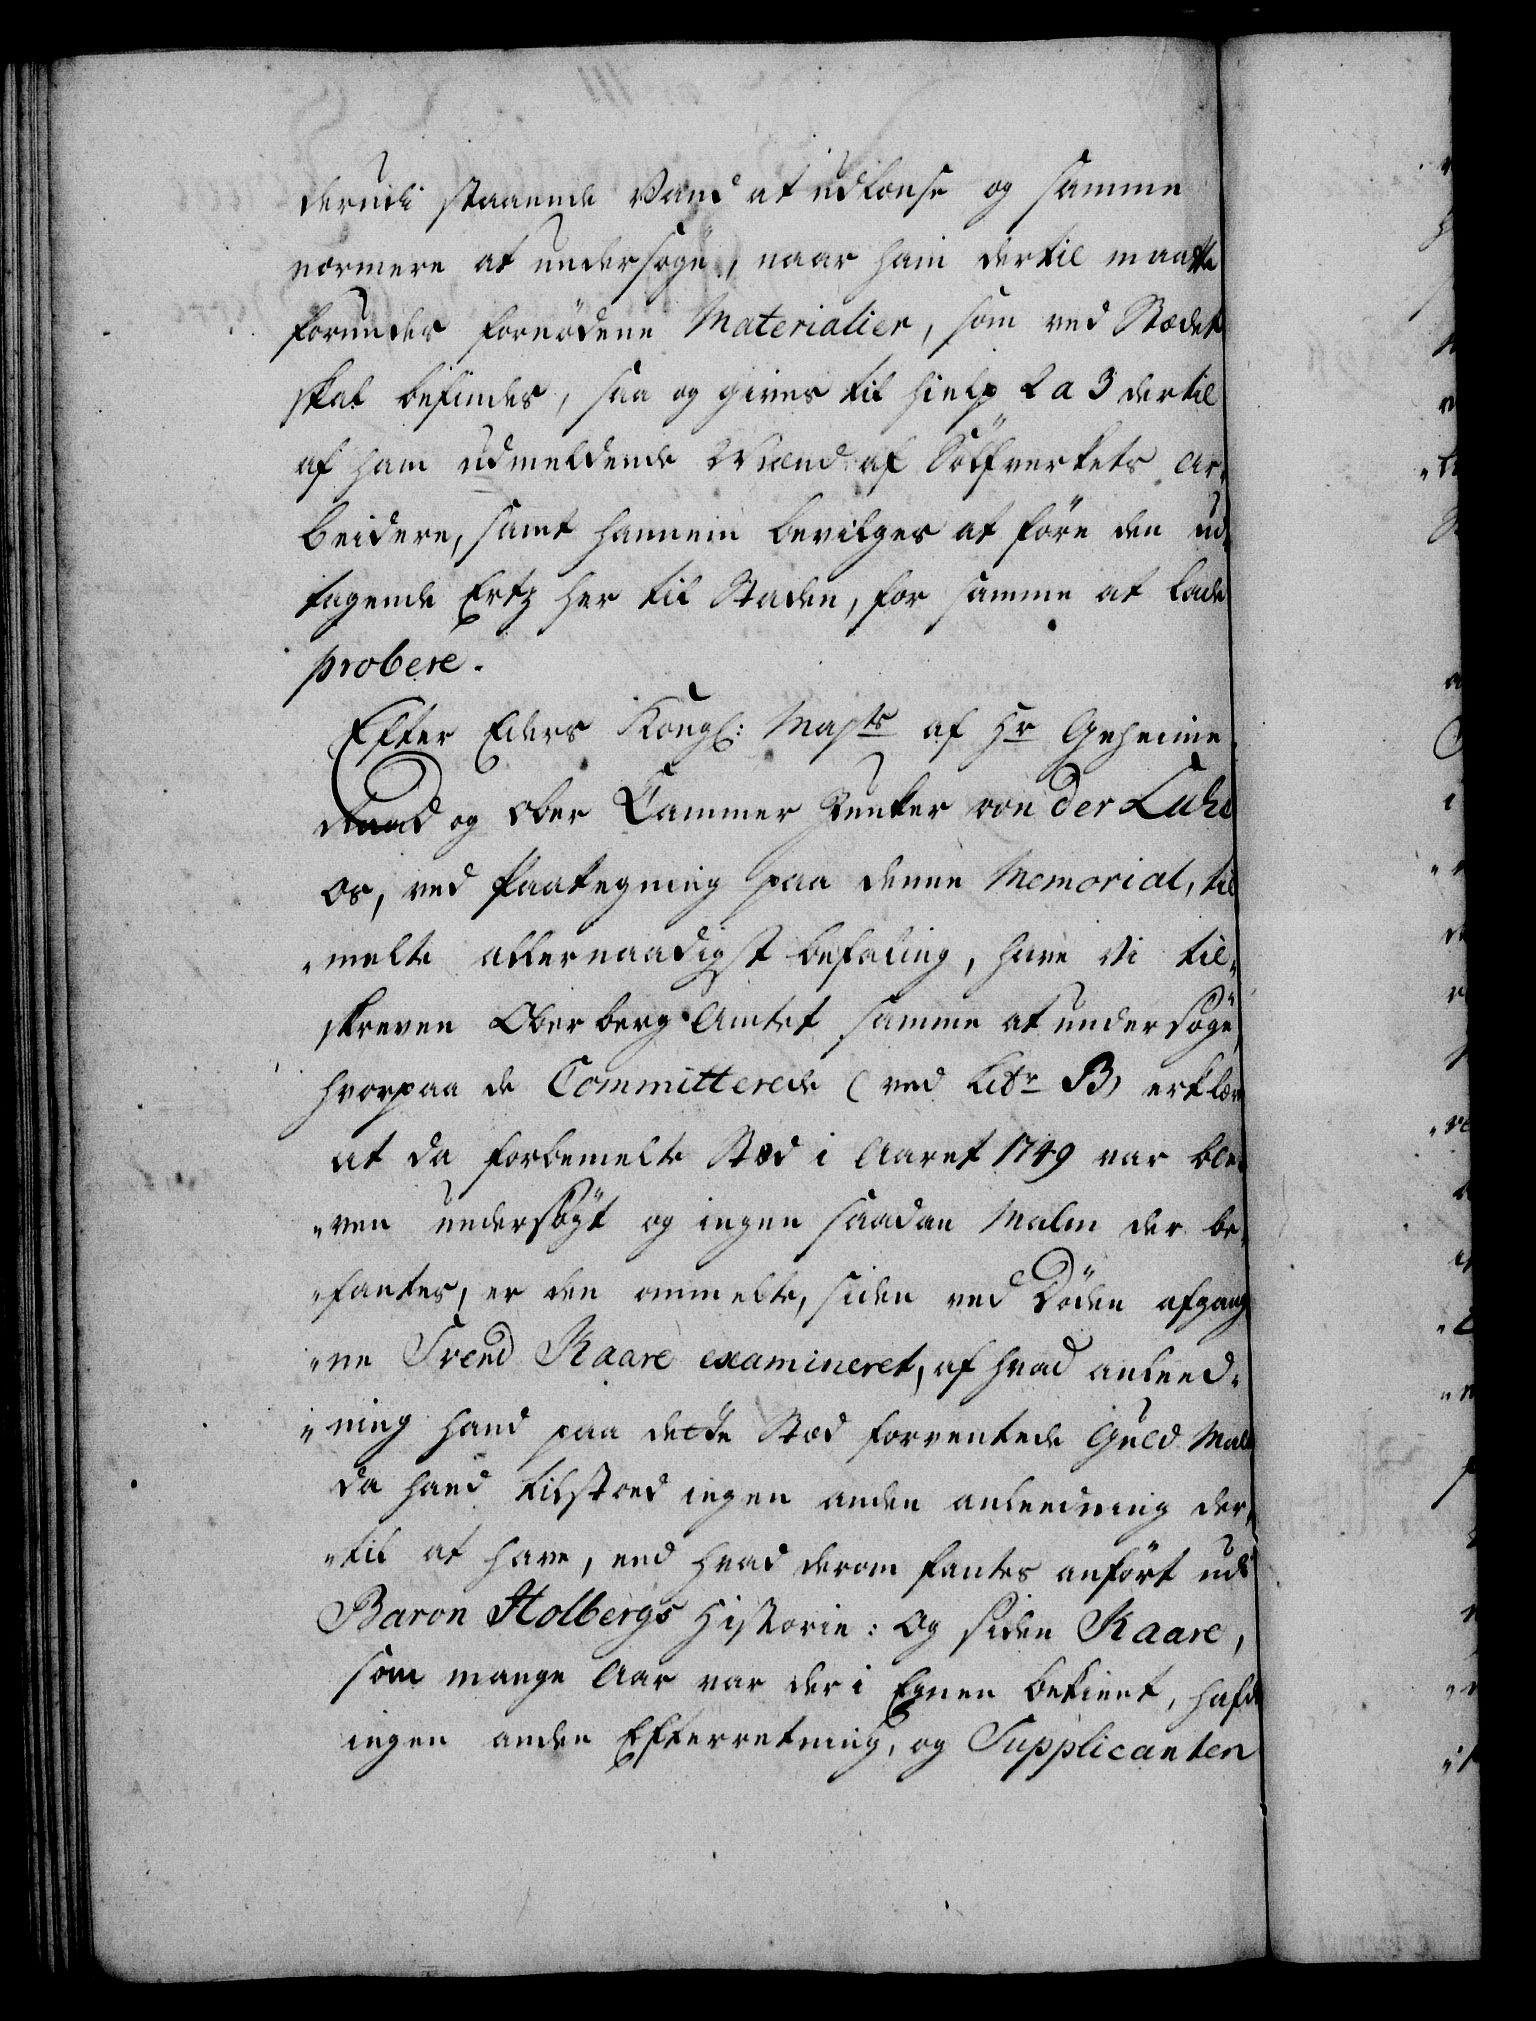 derudi staaende Vand at udlændse og samme
nærmere at undersöge, naar ham dertil maatte
forundes fornödene Materialier, som ved Stædet
skal befindes, saa og gives til hielp 2 a 3 dertil
af ham udmeldende Mænd af Sölfverkets Ar-
beidere, samt hannem bevilges at före den ud-
tagende Ertz her til Staden, for samme at lade
probere.
Efter Eders Kongl: Mayts af Hr Geheime
Raad og Ober Cammer Junker von der Lühe
os, ved Paategning paa denne Memorial, til
„melte allernaadigst befaling, have Vi til„
skreven Oberberg Amtet samme at undersöge,
hvorpaa de Committerede (ved Litr B) erklær
at da forbemelte Stæd i Aaret 1749 var ble„
„ven undersögt og ingen saadan Malm der be„
„fantes, er den ommelte, siden ved Döden afgang
„ne Trend Kaare examineret, af hvad anleed„
„ning hand paa dette Stæd forventede Guld Malm
da hand tilstoed ingen anden anleedning der„
„til at have, end hvad derom fantes anfört udi
Baron Holbergs Historie: Og siden Kaare,
som mange Aar var der i Egnen bekient, hafde
ingen anden Efterretning, og Supplicanten